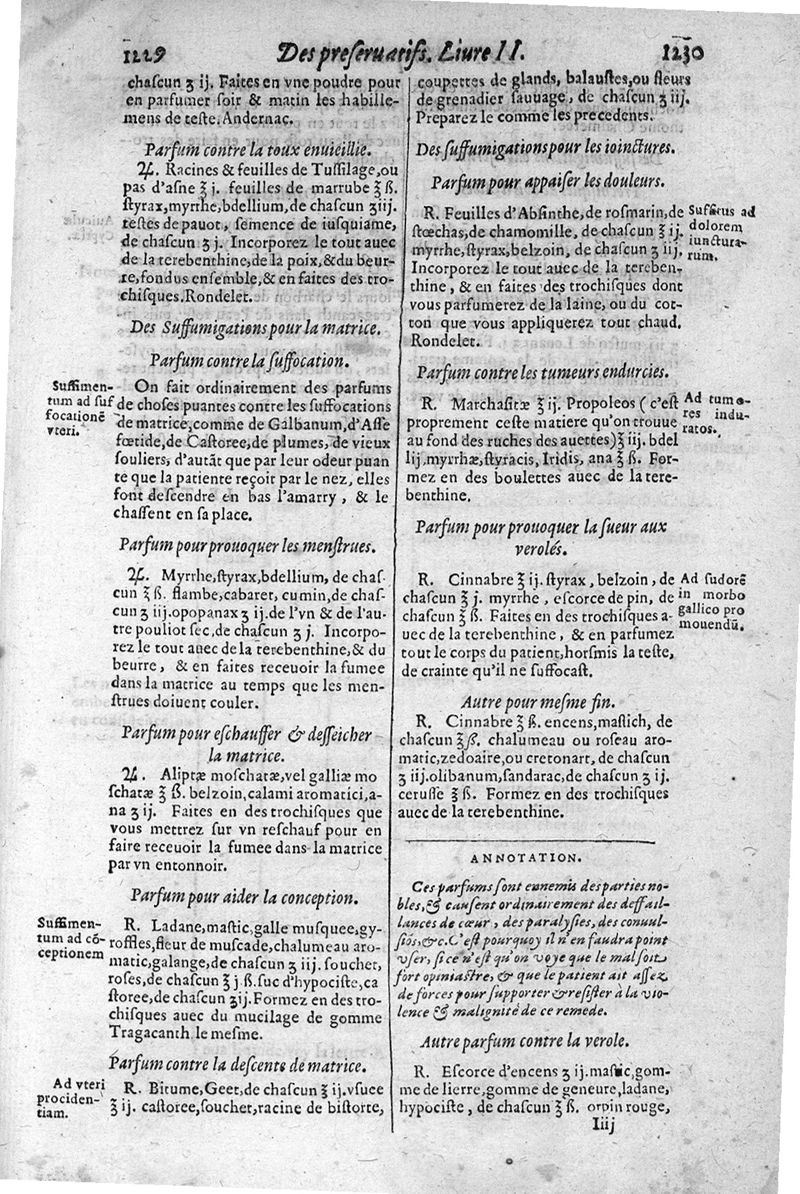 1229 Des preſeruatifs. Liure II. 1230
chaſcun ʒ ij. Faites en vne poudre pour
en parfumer ſoir & matin les habille-
mens de teſte. Andernac.
Parfum contre la toux enuieillie.
♃. Racines & feuilles de Tuſſilage, ou
pas d'aſne ℥ j. feuilles de marrube ℥ ß.
ſtyrax, myrrhe, bdellium, de chaſcun ʒ iij.
teſtes de pauot, ſemence de iuſquiame,
de chaſcun ʒ j. Incorporez le tout auec
de la terebenthine, de la poix, & du beur-
re, fondus enſemble, & en faites des tro-
chiſques. Rondelet.
Des Suffumigations pour la matrice.
Parfum contre la ſuffocation.
Suffimen-
tum ad ſuf
focationē
vteri.
On fait ordinairement des parfums
de choſes puantes contre les ſuffocations
de matrice, comme de Galbanum, d'Aſſe
fœtide, de Caſtoree, de plumes, de vieux
ſouliers, d'autāt que par leur odeur puan
te que la patiente reçoit par le nez, elles
font deſcendre en bas l'amarry, & le
chaſſent en ſa place.
Parfum pour prouoquer les menſtrues.
♃. Myrrhe, ſtyrax, bdellium, de chaſ-
cun ℥ ß. flambe, cabaret, cumin, de chaſ-
cun ʒ iij. opopanax ʒ ij. de l'vn & de l'au-
tre pouliot ſec, de chaſcun ʒ j. Incorpo-
rez le tout auec de la terebenthine, & du
beurre, & en faites receuoir la fumee
dans la matrice au temps que les men-
ſtrues doiuent couler.
Parfum pour eſchauffer & deſſeicher
la matrice.
♃. Aliptæ moſchatæ, vel galliæ mo
ſchatæ ℥ ß. belzoin, calami aromatici, a-
na ʒ ij. Faites en des trochiſques que
vous mettrez ſur vn reſchauf pour en
faire receuoir la fumee dans la matrice
par vn entonnoir.
Parfum pour aider la conception.
Suffimen-
tum ad cō-
ceptionem
R. Ladane, maſtic, galle muſquee, gy-
roffles, fleur de muſcade, chalumeau aro-
matic, galange, de chaſcun ʒ iij. ſouchet,
roſes, de chaſcun ʒ j ß. ſuc d'hypociſte, ca
ſtoree, de chaſcun ʒ ij. Formez en des tro-
chiſques auec du mucilage de gomme
Tragacanth le meſme.
Parfum contre la deſcente de matrice.
Ad vteri
prociden-
tiam.
R. Bitume, Geet, de chaſcun ℥ ij. vſuee
℥ ij. caſtoree, ſouchet, racine de biſtorte,
coupettes de glands, balauſtes, ou fleurs
de grenadier ſauuage, de chaſcun ʒ iij.
Preparez le comme les precedents.
Des ſuffumigations pour les ioinctures.
Parfum pour appaiſer les douleurs.
R. Feuilles d'Abſinthe, de roſmarin, de
ſtœchas, de chamomille, de chaſcun ℥ ij.
myrrhe, ſtyrax, belzoin, de chaſcun ʒ iij.
Incorporez le tout auec de la tereben-
thine, & en faites des trochiſques dont
vous parfumerez de la laine, ou du cot-
ton que vous appliquerez tout chaud.
Rondelet.
Suffitus ad
dolorem
iunctura-
rum.
Parfum contre les tumeurs endurcies.
R. Marchaſitæ ℥ ij. Propoleos (c'eſt
proprement ceſte matiere qu'on trouue
au fond des ruches des auettes) ℥ iij. bdel
lij, myrrhæ, ſtyracis, Iridis, ana ℥ ß. For-
mez en des boulettes auec de la tere-
benthine.
Ad tumo-
res indu-
ratos.
Parfum pour prouoquer la ſueur aux
verolés.
R. Cinnabre ℥ ij. ſtyrax, belzoin, de
chaſcun ℥ j. myrrhe, eſcorce de pin, de
chaſcun ℥ ß. Faites en des trochiſques a-
uec de la terebenthine, & en parfumez
tout le corps du patient, horſmis la teſte,
de crainte qu'il ne ſuffocaſt.
Ad ſudorē
in morbo
gallico pro
mouendū.
Autre pour meſme fin.
R. Cinnabre ℥ ß. encens, maſtich, de
chaſcun ℥ ß. chalumeau ou roſeau aro-
matic, zedoaire, ou cretonart, de chaſcun
ʒ iij. olibanum, ſandarac, de chaſcun ʒ ij.
ceruſſe ℥ ß. Formez en des trochiſques
auec de la terebenthine.
ANNOTATION.
Ces parfums ſont ennemis des parties no-
bles, & cauſent ordinairement des deffail-
lances de cœur, des paralyſies, des conuul-
ſiōs, &c. C'eſt pourquoy il n'en faudra point
vſer, ſi ce n'eſt qu'on voye que le mal ſoit
fort opiniaſtre, & que le patient ait aſſez
de forces pour ſupporter & reſiſter à la vio-
lence & malignité de ce remede.
Autre parfum contre la verole.
R. Eſcorce d'encens ʒ ij. maſtic, gom-
me de lierre, gomme de geneure, ladane,
hypociſte, de chaſcun ℥ ß. orpin rouge,
Iiij